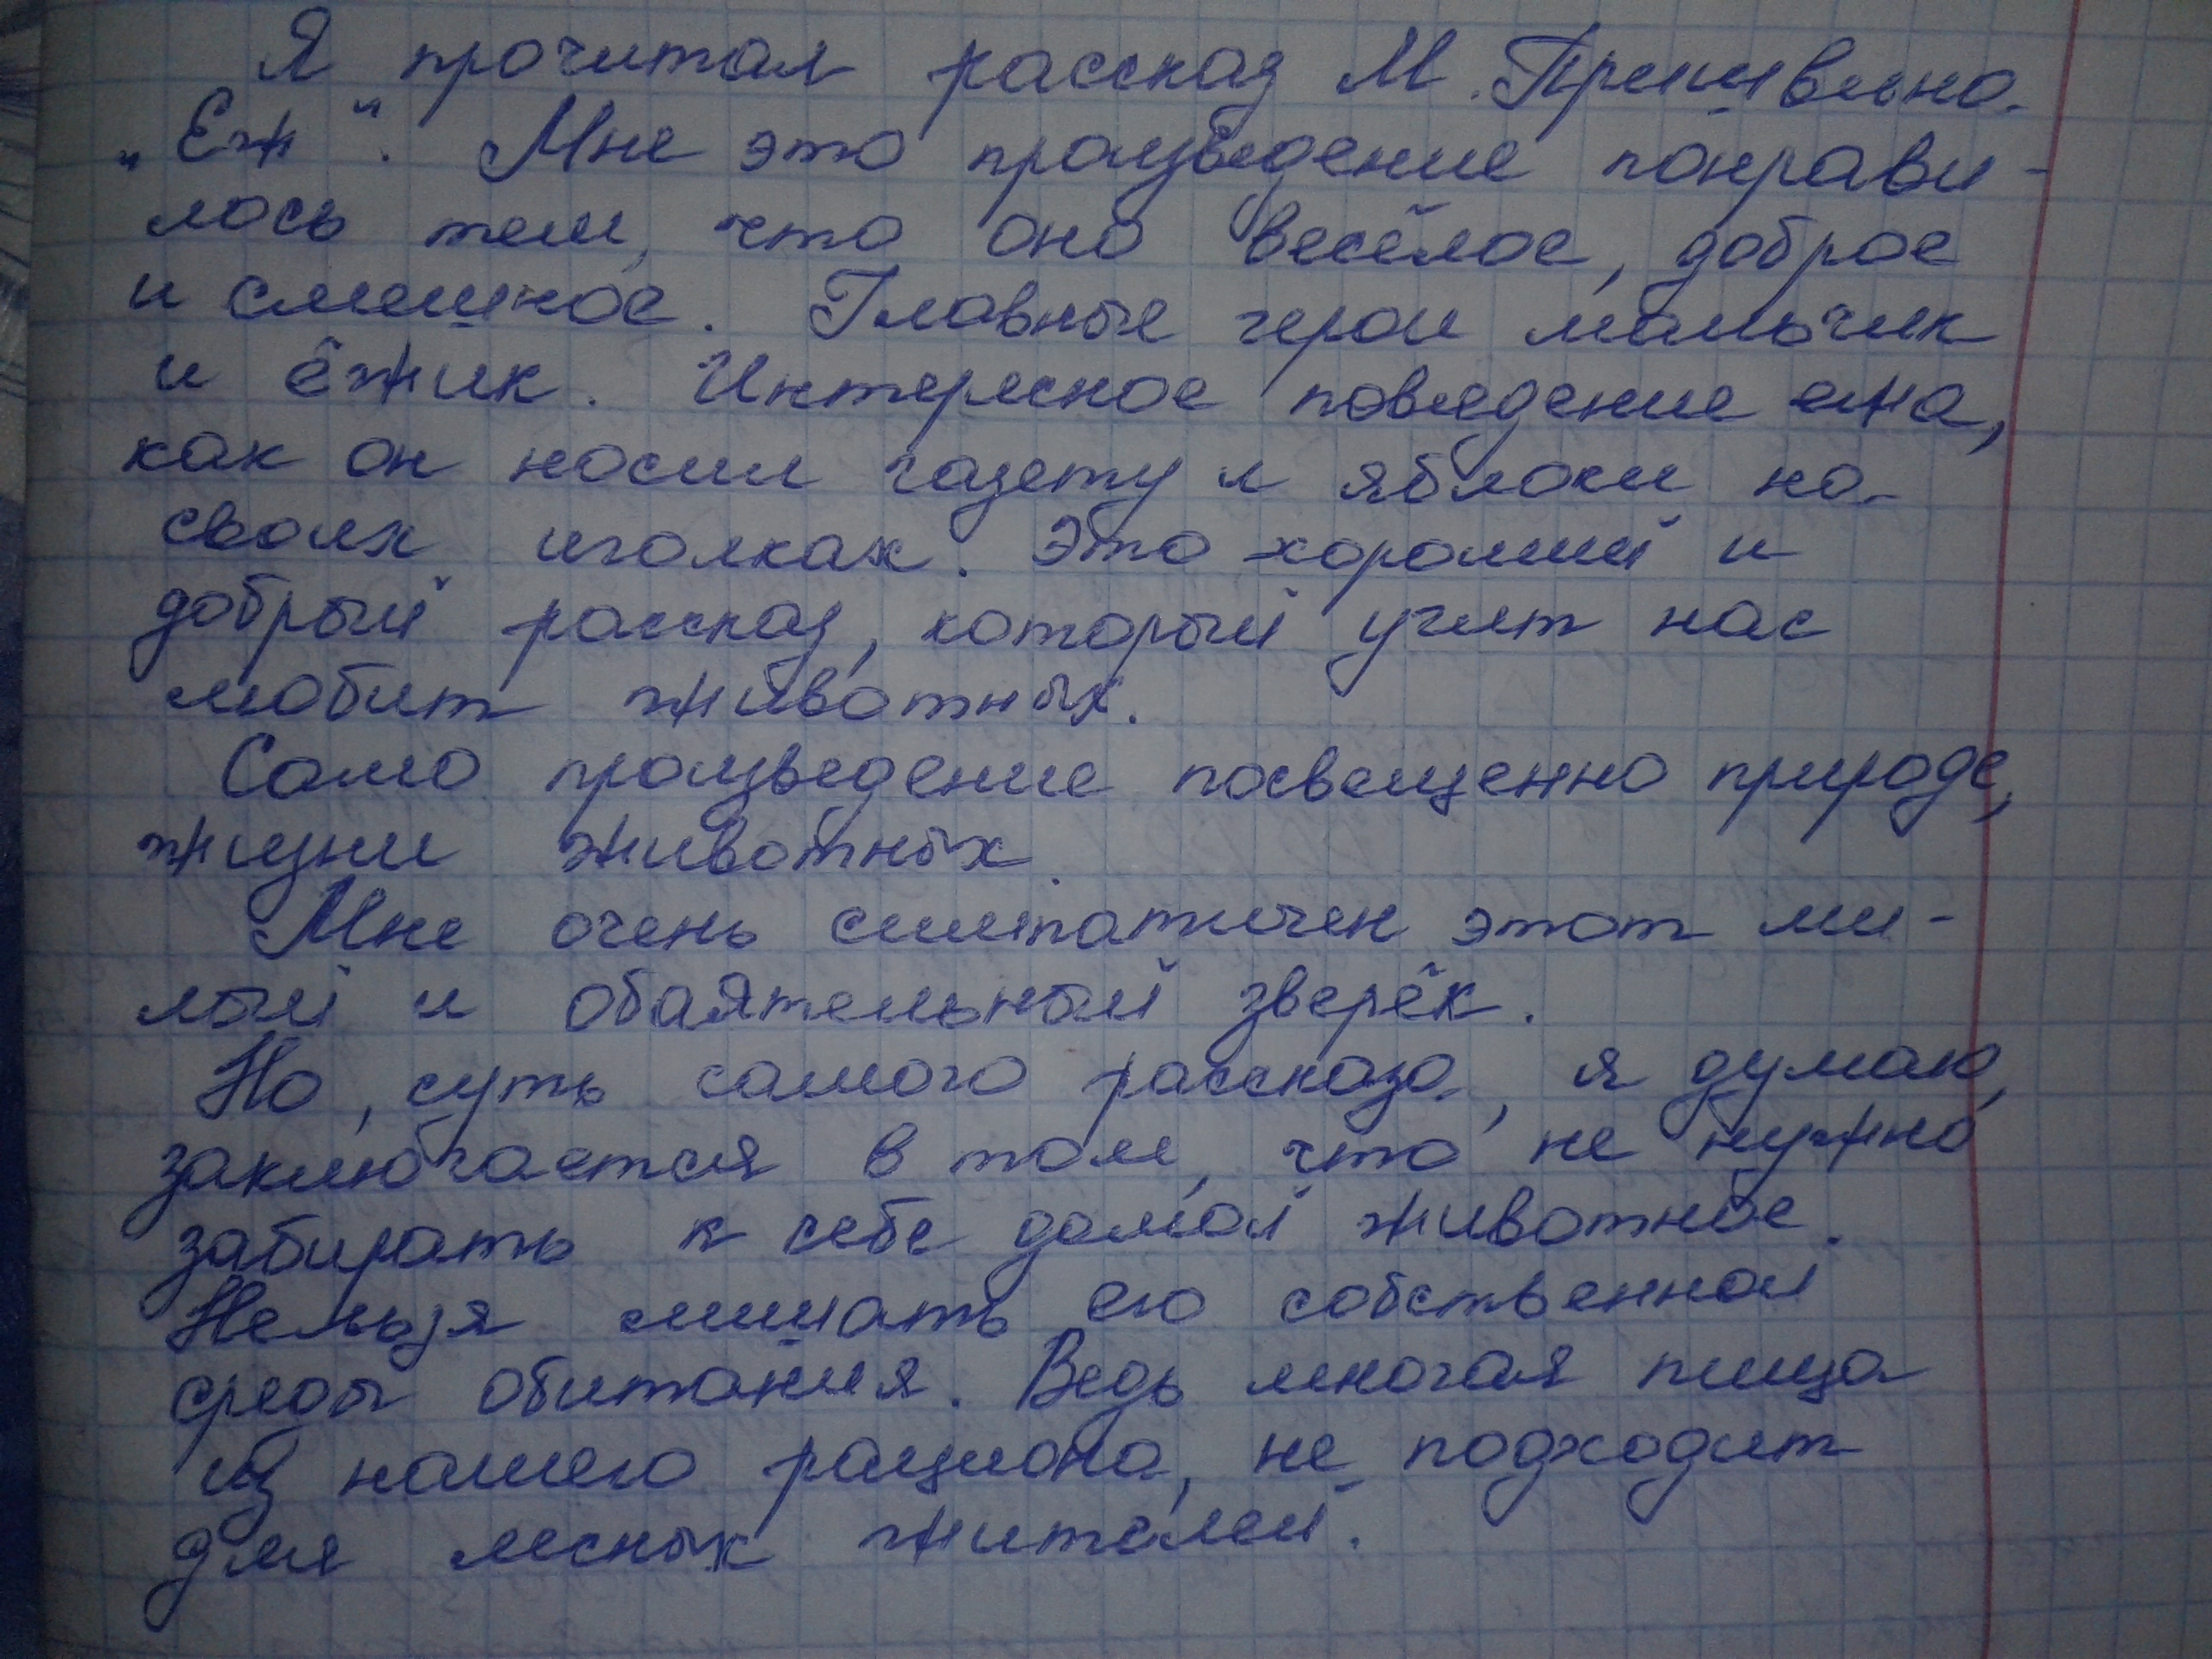 Я прочитал рассказ М. Пришвина
„Еж“. Мне это произведение понрави-
лось тем, что оно весёлое, доброе
и смешное. Главные герои мальчик
и ёжик. Интересное поведение ежа,
как он носил газету и яблоки на
своих иголках. Это хороший и
добрый рассказ, который учит нас
любит животных.
Само произведение посвещенно природе,
жизни животных.
Мне очень симпатичен этот ми-
лый и обаятельный зверёк.
Но, суть самого рассказа, я думаю,
заключается в том, что не нужно
забирать к себе домой животное.
Нельзя лишать его собственной
среды обитания. Ведь многая пища
из нашего рациона, не подходит
для лесных жителей.